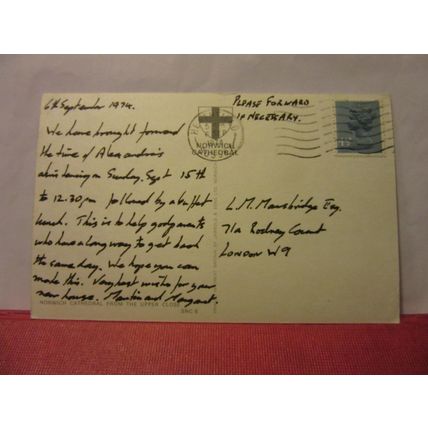 6th September 1974.
We have brought forward
the time of Alexandra's
christening on Sunday, Sept 15th
to 12.30pm followed by a buffet
lunch. This is to help godparents
who have a long way to get back
the same day. We hope you can
make this. Very best wishes for your
new house. Martin and Margaret.
NORWICH CATHEDRAL FROM THE UPPER CLOSE
SNC 6
NORWICH
CATHEDRAL
PLEASE FORWARD
IF NECESSARY.
L.M. Mansbridge Esq.
71a Rodney Court
LONDON W9